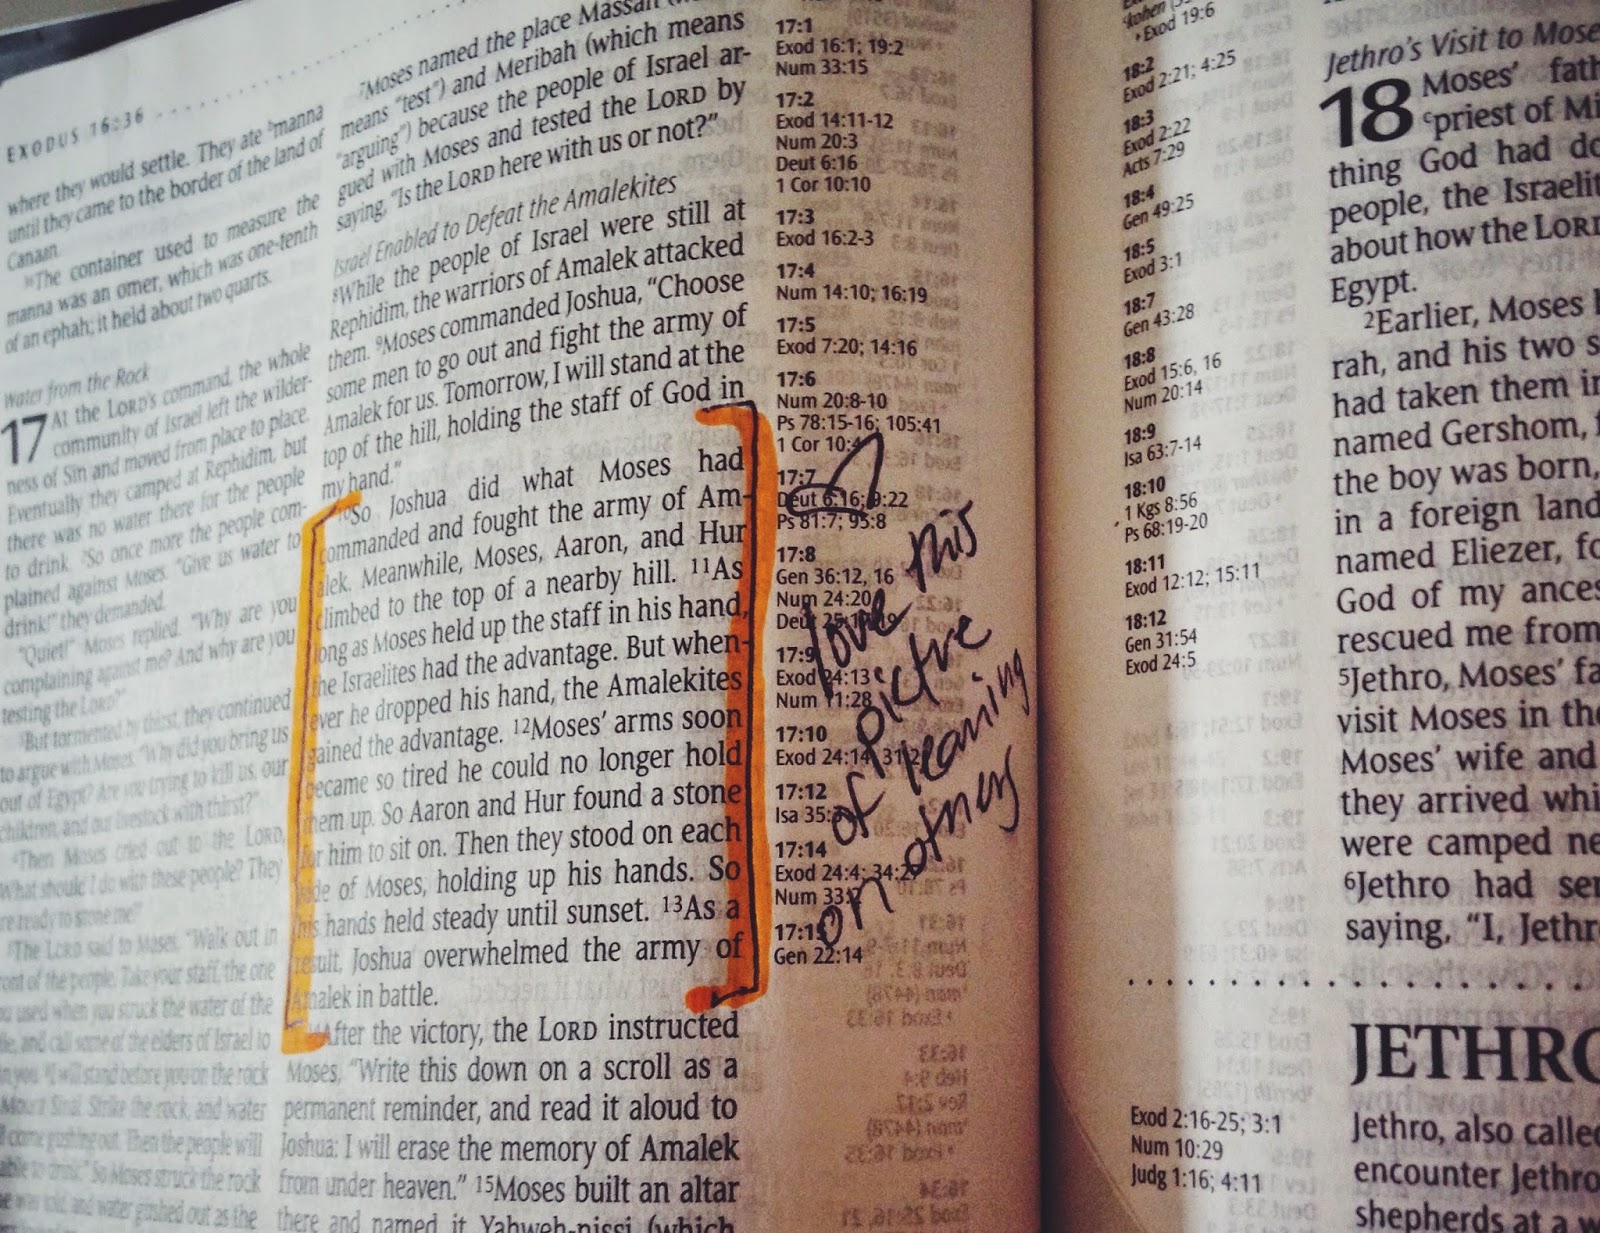 EXODUS 16:36
where they would settle. They ate manna
until they came to the border of the land of
Canaan.
36The container used to measure the
manna was an omer, which was one-tenth
of an ephah; it held about two quarts.
Water from the Rock
17 At the LORD's command, the whole
community of Israel left the wilder-
ness of Sin and moved from place to place.
Eventually they camped at Rephidim, but
there was no water there for the people
to drink. 2So once more the people com-
plained against Moses. "Give us water to
drink!" they demanded.
"Quiet!" Moses replied. "Why are you
complaining against me? And why are you
testing the LORD?"
3But tormented by thirst, they continued
to argue with Moses. "Why did you bring us
out of Egypt? Are you trying to kill us, our
children, and our livestock with thirst?"
4Then Moses cried out to the LORD,
What should I do with these people? They
are ready to stone me!"
5The LORD said to Moses, "Walk out in
front of the people. Take your staff, the one
you used when you struck the water of the
and call some of the elders of Israel to
you. 6I will stand before you on the rock
Mount Sinai. Strike the rock, and water
will come gushing out. Then the people will
able to drink." So Moses struck the rock
was told, and water gushed out as the
7Moses named the place Massah
means "test") and Meribah (which means
"arguing") because the people of Israel ar-
gued with Moses and tested the LORD by
saying, "Is the LORD here with us or not?"
Israel Enabled to Defeat the Amalekites
8While the people of Israel were still at
Rephidim, the warriors of Amalek attacked
them. 9Moses commanded Joshua, "Choose
some men to go out and fight the army of
Amalek for us. Tomorrow, I will stand at the
top of the hill, holding the staff of God in
my hand."
10So Joshua did what Moses had
commanded and fought the army of Am-
alek. Meanwhile, Moses, Aaron, and Hur
climbed to the top of a nearby hill. 11As
long as Moses held up the staff in his hand,
the Israelites had the advantage. But when-
ever he dropped his hand, the Amalekites
gained the advantage. 12Moses' arms soon
became so tired he could no longer hold
them up. So Aaron and Hur found a stone
for him to sit on. Then they stood on each
side of Moses, holding up his hands. So
his hands held steady until sunset. 13As a
result, Joshua overwhelmed the army of
Amalek in battle.
14After the victory, the LORD instructed
Moses, "Write this down on a scroll as a
permanent reminder, and read it aloud to
Joshua: I will erase the memory of Amalek
from under heaven." 15Moses built an altar
there and named it Yahweh-nissi (which
17:1
Exod 16:1; 19:2
Num 33:15
17:2
Exod 14:11-12
Num 20:3
Deut 6:16
1 Cor 10:10
17:3
Exod 16:2-3
17:4
Num 14:10; 16:19
17:5
Exod 7:20; 14:16
17:6
Num 20:8-10
Ps 78:15-16; 105:41
1 Cor 10:4
17:7
Deut 6:16; 9:22
Ps 81:7; 95:8
17:8
Gen 36:12, 16
Num 24:20
Deut 25:17-19
17:9
Exod 24:13
Num 11:28
17:10
Exod 24:14; 31:2
17:12
Isa 35:3
17:14
Exod 24:4; 34:27
Num 33:2
17:15
Gen 22:14
love this
picture
of leaning
on others
kohen
Exod 19:6
18:2
Exod 2:21; 4:25
18:3
Exod 2:22
Acts 7:29
18:4
Gen 49:25
18:5
Exod 3:1
18:7
Gen 43:28
18:8
Exod 15:6, 16
Num 20:14
18:9
Isa 63:7-14
18:10
1 Kgs 8:56
Ps 68:19-20
18:11
Exod 12:12; 15:11
18:12
Gen 31:54
Exod 24:5
Exod 2:16-25; 3:1
Num 10:29
Judg 1:16; 4:11
Jethro's Visit to Mose
18 Moses' fath
cpriest of Mi
thing God had do
people, the Israelit
about how the LOR
Egypt.
2Earlier, Moses h
rah, and his two s
had taken them in
named Gershom, f
the boy was born,
in a foreign land
named Eliezer, fo
God of my ances
rescued me from
5Jethro, Moses' fa
visit Moses in the
Moses' wife and
they arrived whi
were camped ne
6Jethro had sen
saying, "I, Jethr
JETHRO
Jethro, also called
encounter Jethro
shepherds at a w